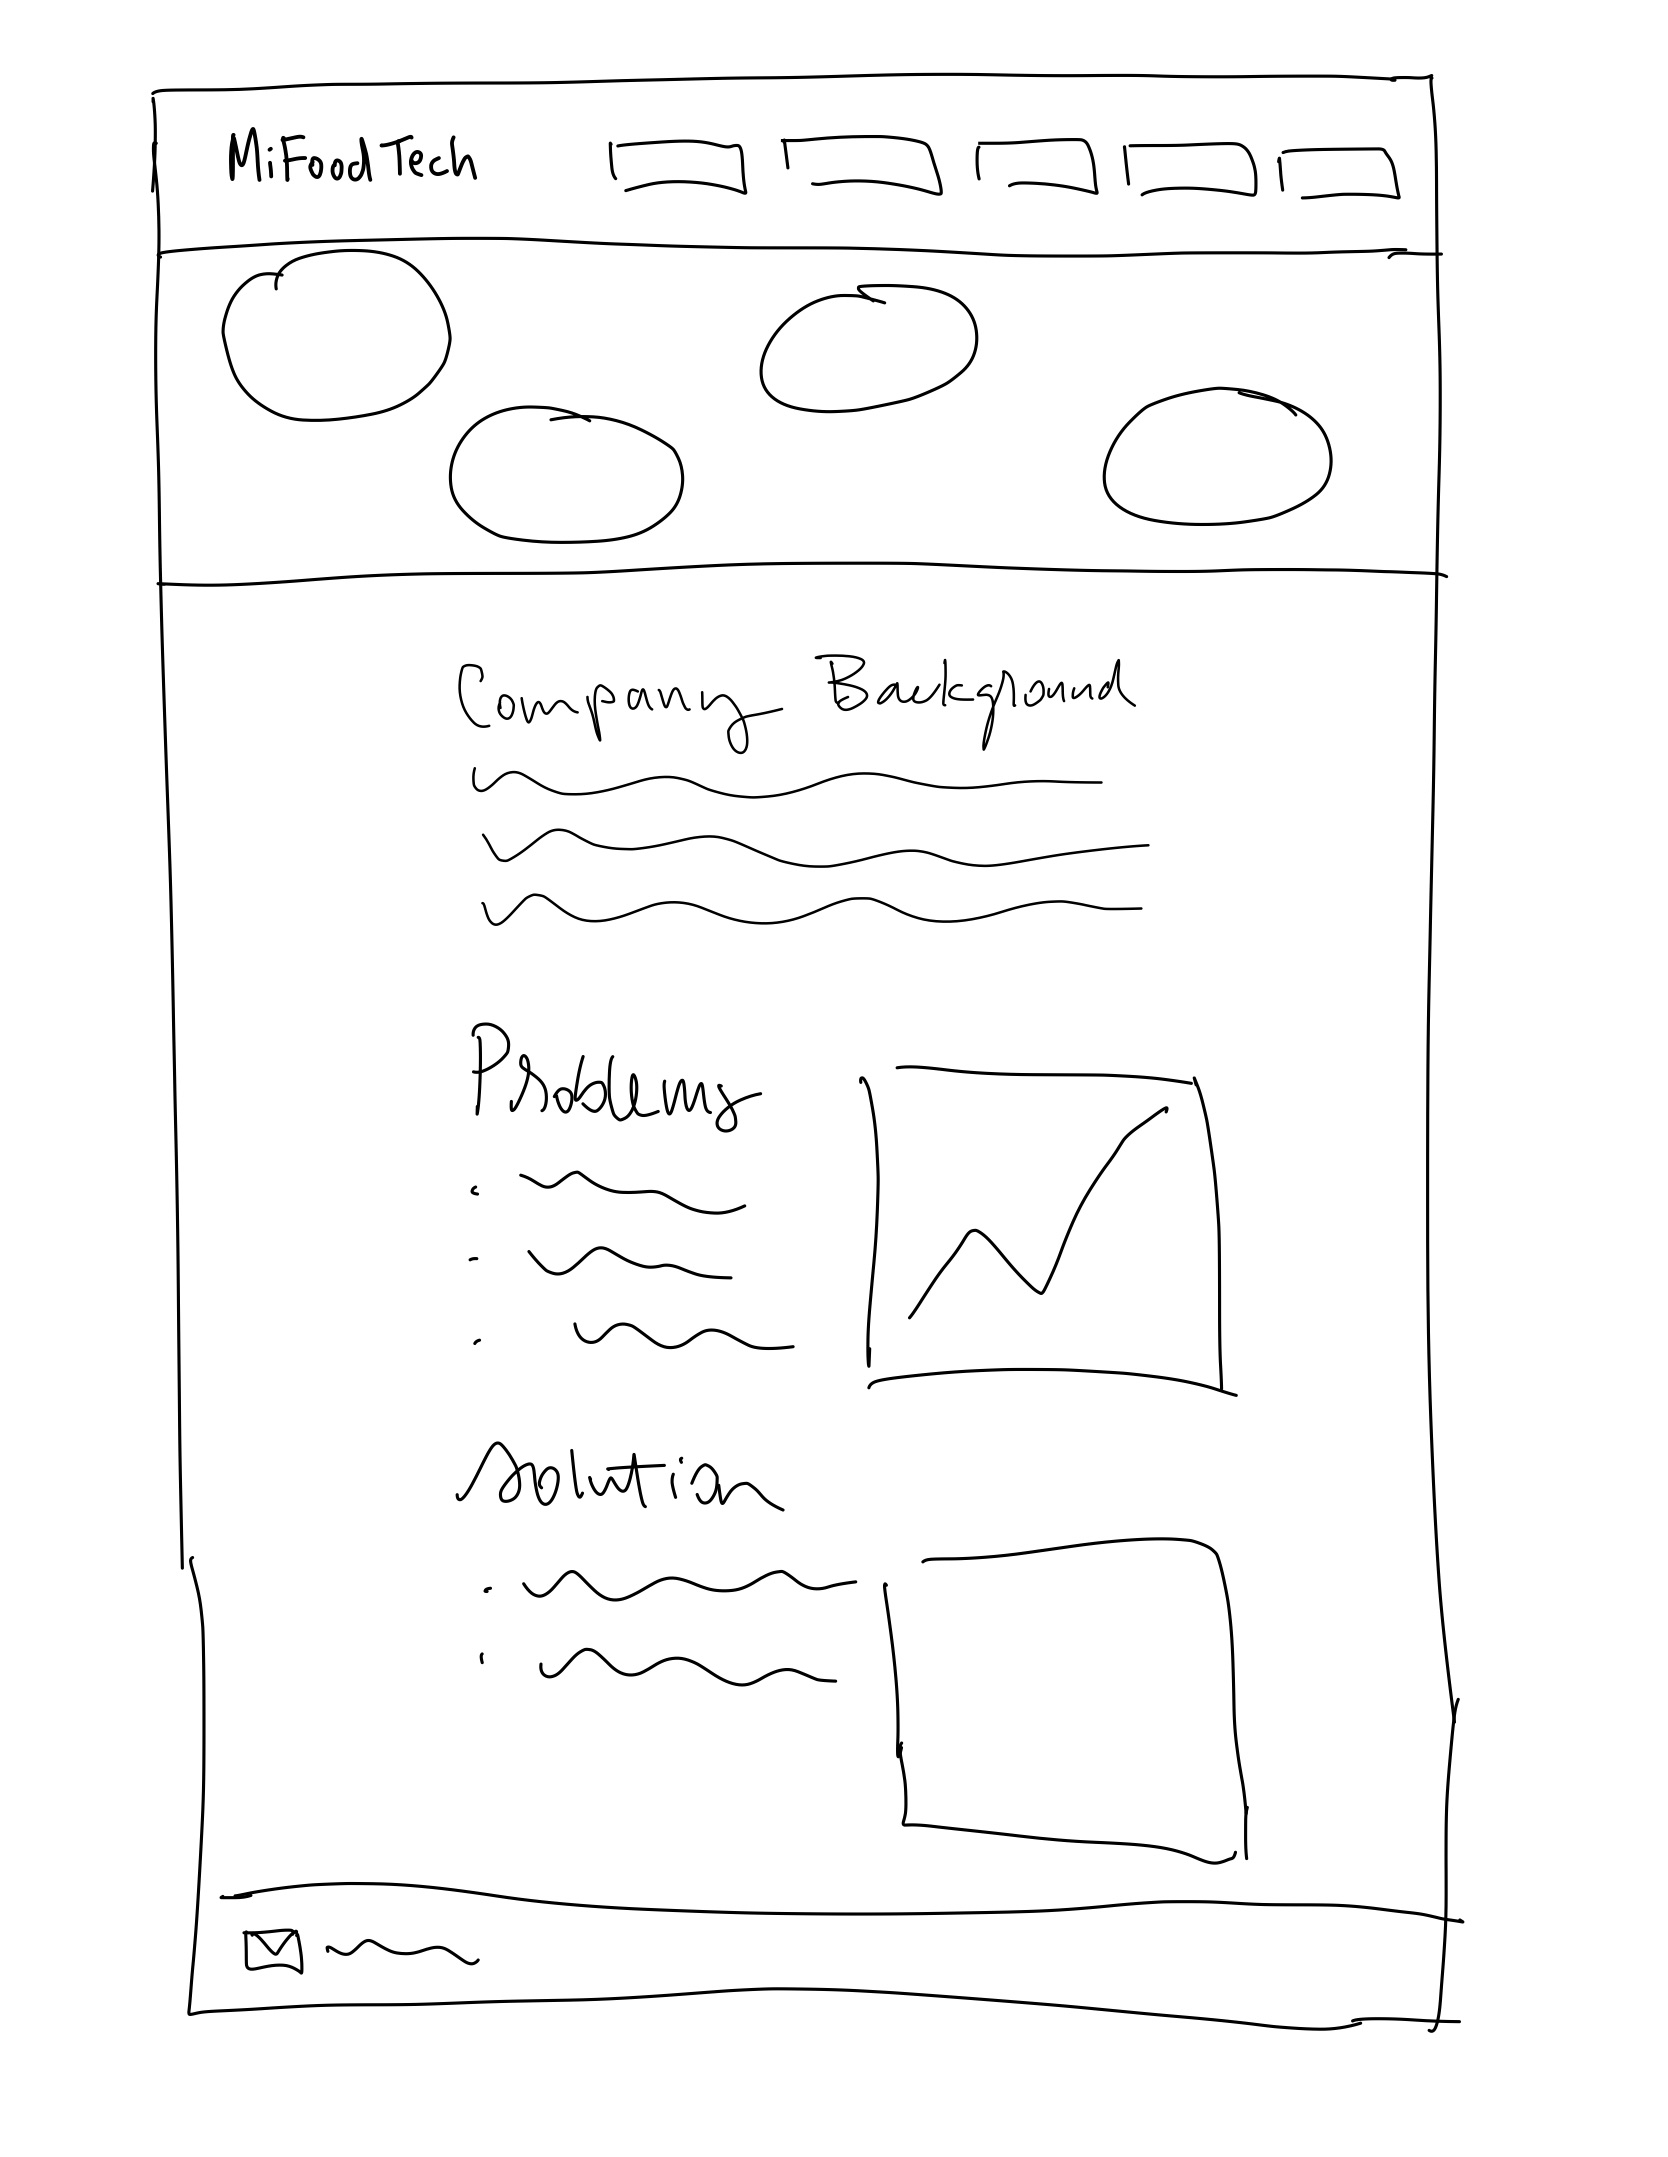 MiFoodTech
Company Background
Problems
Solution